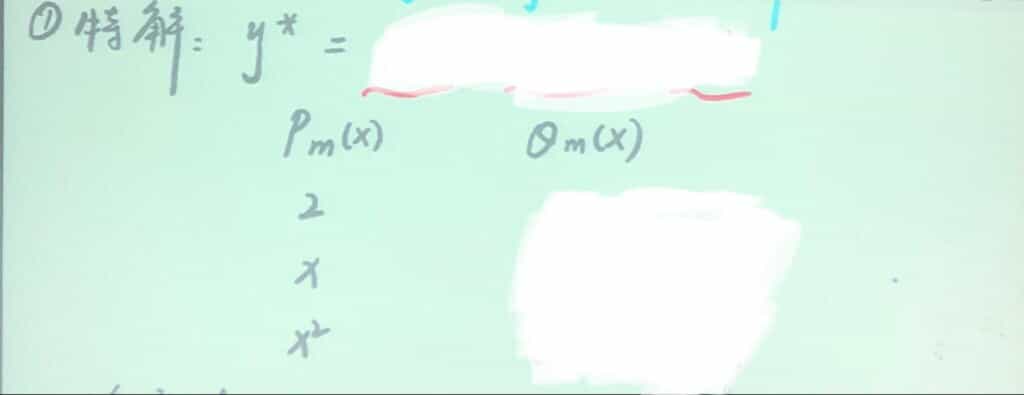 ①特解: y* =
Pm(x) Qm(x)
2
x
x²